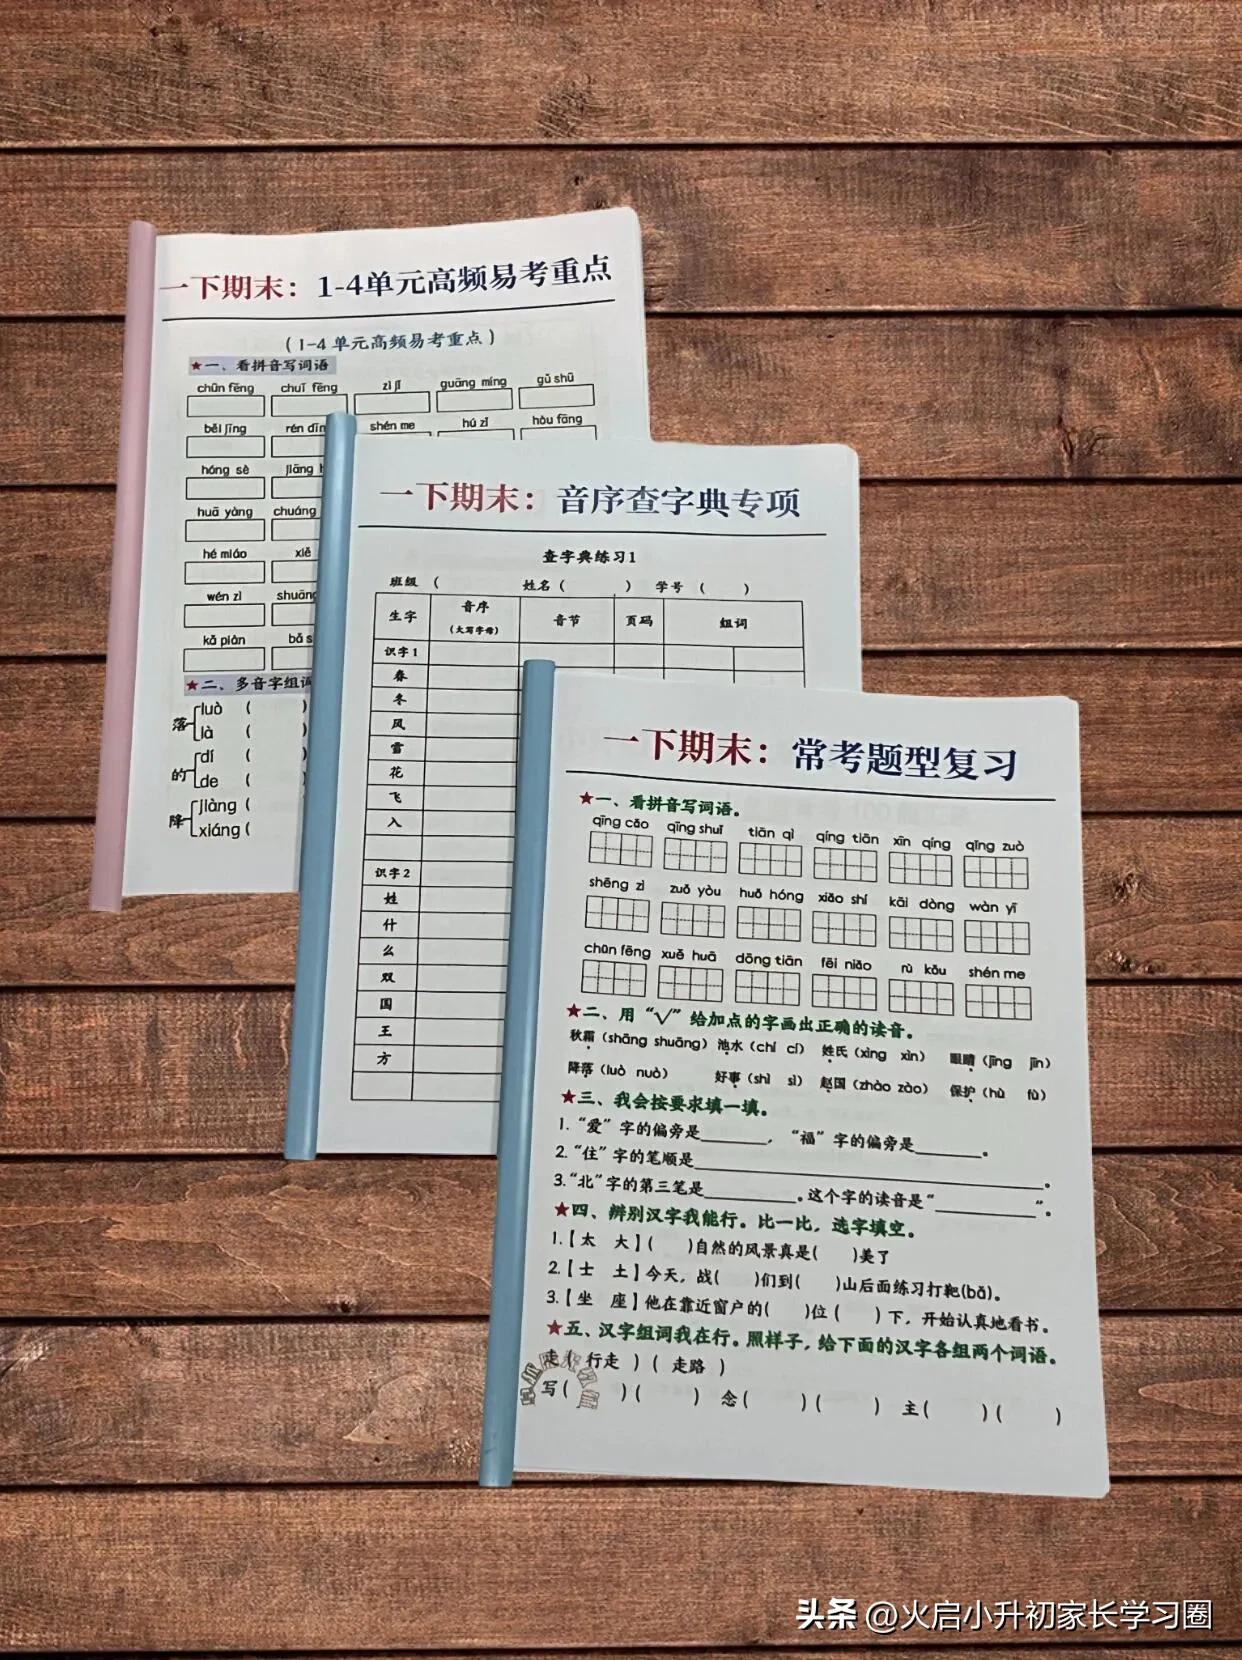 一下期末：1-4单元高频易考重点
（1-4 单元高频易考重点）
★一、看拼音写词语
chūn fēng chuī fēng zì jǐ guāng míng gǔ shū
běi jīng rén shén me hú zǐ hòu fāng
hóng sè jiāng
huā yàng chuáng
hé miáo xiě
wén zì shuāng
kǎ piàn bǎ
★二、多音字组词
落 luò （ ）
là （ ）
的 dí （ ）
de （ ）
降 jiàng （
xiáng （
一下期末：音序查字典专项
查字典练习1
班级 （ 姓名（ ） 学号 （ ）
生字 音序（大写字母） 音节 页码 组词
识字1
春
冬
风
雪
花
飞
入
识字2
姓
什
么
双
国
王
方
一下期末：常考题型复习
★一、看拼音写词语。
qīng cǎo qīng shuǐ tiān qì qíng tiān xīn qíng qǐng zuò
shēng zì zuǒ yòu huǒ hóng xiǎo shí kāi dòng wàn yī
chūn fēng xuě huā dōng tiān fēi niǎo rù kǒu shén me
★二、用“√”给加点的字画出正确的读音。
秋霜（shāng shuāng） 池水（chí cí） 姓氏（xìng xìn） 眼睛（jīng jīn）
降落（luò nuò） 好事（shì sì） 赵国（zhào zào） 保护（hù fù）
★三、我会按要求填一填。
1.“爱”字的偏旁是________，“福”字的偏旁是________。
2.“住”字的笔顺是________________________________。
3.“北”字的第三笔是__________。这个字的读音是“__________”。
★四、辨别汉字我能行。比一比，选字填空。
1.【太 大】（ ）自然的风景真是（ ）美了
2.【士 土】今天，战（ ）们到（ ）山后面练习打靶(bǎ)。
3.【坐 座】他在靠近窗户的（ ）位（ ）下，开始认真地看书。
★五、汉字组词我在行。照样子，给下面的汉字各组两个词语。
走（ 行走 ）（ 走路 ）
写（ ）（ ） 念（ ）（ ） 主（ ）（ ）
头条 @火启小升初家长学习圈